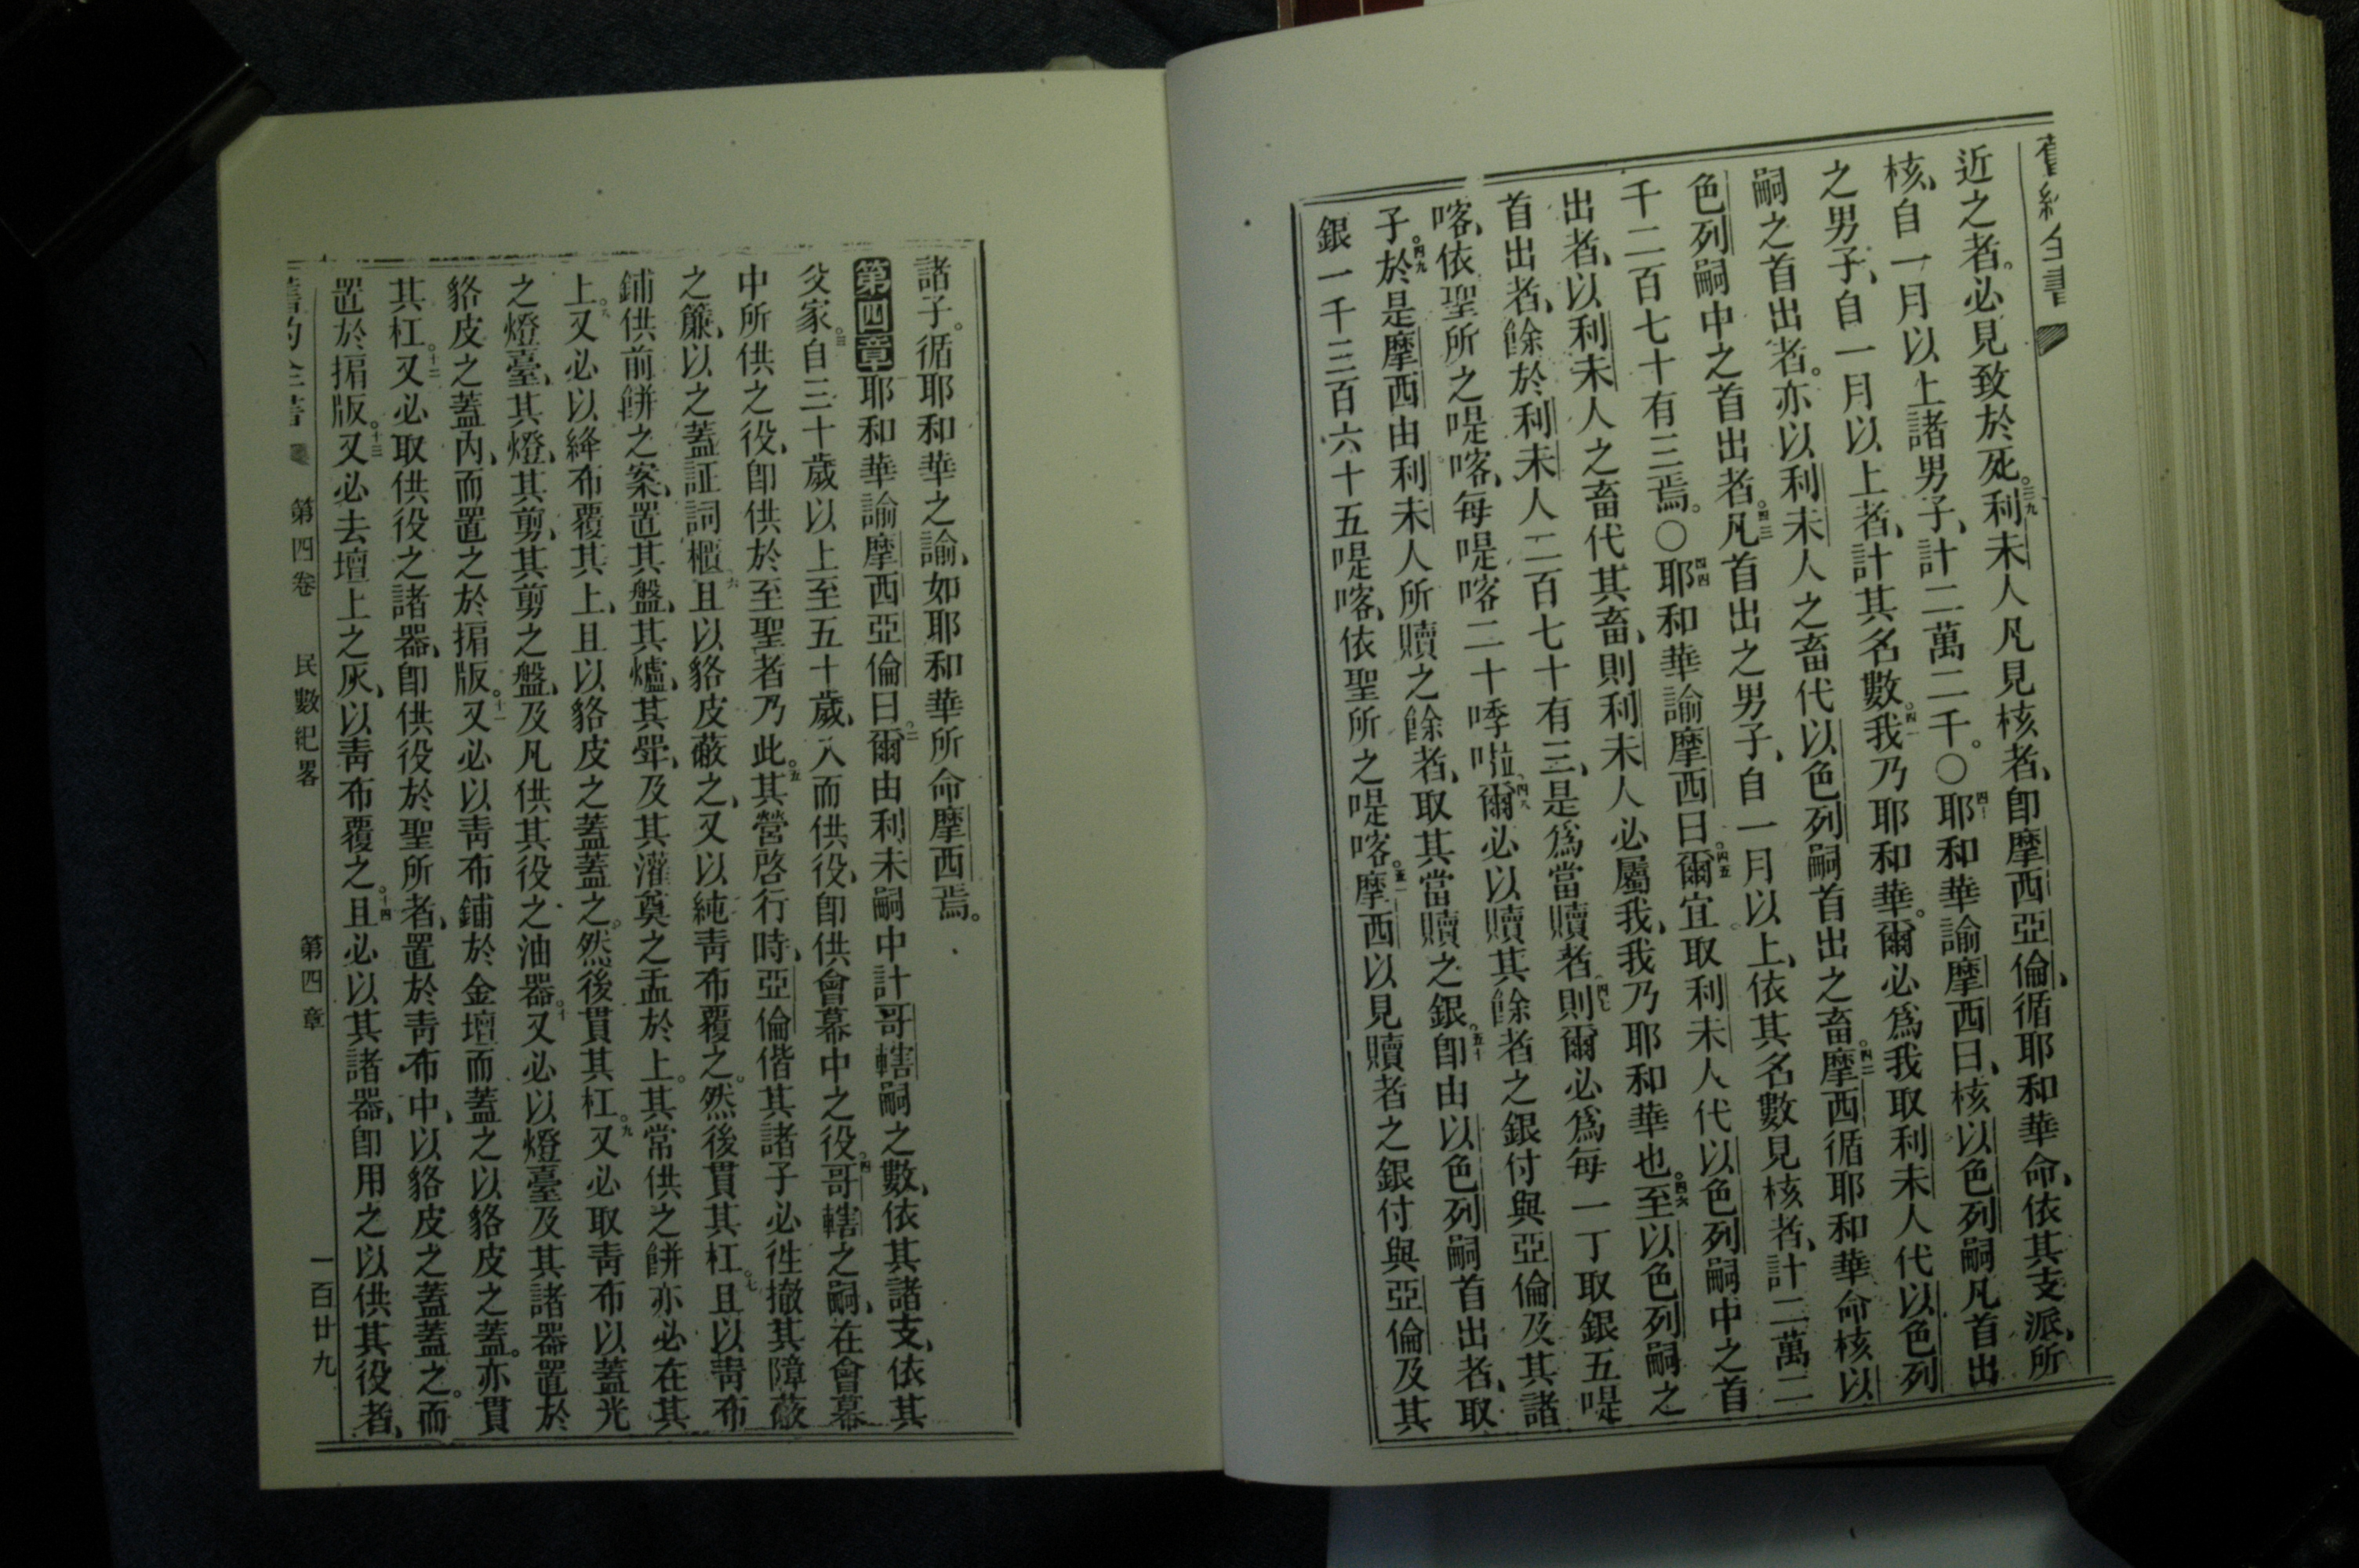 舊約全書
近之者。必見致於死。三九利未人凡見核者、卽摩西亞倫、循耶和華命、依其支派、所
核、自一月以上諸男子、計二萬二千。〇四十耶和華諭摩西曰、核以色列嗣凡首出
之男子、自一月以上者、計其名數。四一我乃耶和華。爾必爲我取利未人代以色列
嗣之首出者。亦以利未人之畜代以色列嗣首出之畜。四二摩西循耶和華命核以
色列嗣中之首出者。四三凡首出之男子、自一月以上、依其名數見核者、計二萬二
千二百七十有三焉。〇四四耶和華諭摩西曰。四五爾宜取利未人代以色列嗣中之首
出者、以利未人之畜代其畜、則利未人必屬我、我乃耶和華也。四六至以色列嗣之
首出者、餘於利未人二百七十有三、是爲當贖者、四七則爾必爲每一丁取銀五㖷
喀、依聖所之㖷喀、每㖷喀二十㖢啦、四八爾必以贖其餘者之銀付與亞倫及其諸
子。四九於是摩西由利未人所贖之餘者、取其當贖之銀。五十卽由以色列嗣首出者、取
銀一千三百六十五㖷喀、依聖所之㖷喀。五一摩西以見贖者之銀付與亞倫及其
諸子。循耶和華之諭、如耶和華所命摩西焉。
第四章耶和華諭摩西亞倫曰。二爾由利未嗣中計哥轄嗣之數、依其諸支、依其
父家。三自三十歲以上至五十歲、入而供役、卽供會幕中之役。四哥轄之嗣、在會幕
中所供之役、卽供於至聖者乃此。五其營啓行時、亞倫偕其諸子必徃撤其障蔽
之簾、以之蓋証詞櫃。六且以貉皮蔽之、又以純靑布覆之。然後貫其杠。七且以靑布
鋪供前餅之案、置其盤、其爐、其斝、及其灌奠之盂於上。其常供之餅亦必在其
上。八又必以絳布覆其上、且以貉皮之蓋蓋之。然後貫其杠。九又必取靑布以蓋光
之燈臺、其燈、其剪、其剪之盤、及凡供其役之油器。十又必以燈臺及其諸器置於
貉皮之蓋內、而置之於揹版。十一又必以靑布鋪於金壇而蓋之以貉皮之蓋。亦貫
其杠。十二又必取供役之諸器、卽供役於聖所者、置於靑布中、以貉皮之蓋蓋之。而
置於揹版。十三又必去壇上之灰、以靑布覆之。十四且必以其諸器、卽用之以供其役者、
舊約全書 第四卷 民數紀畧 第四章 一百廿九